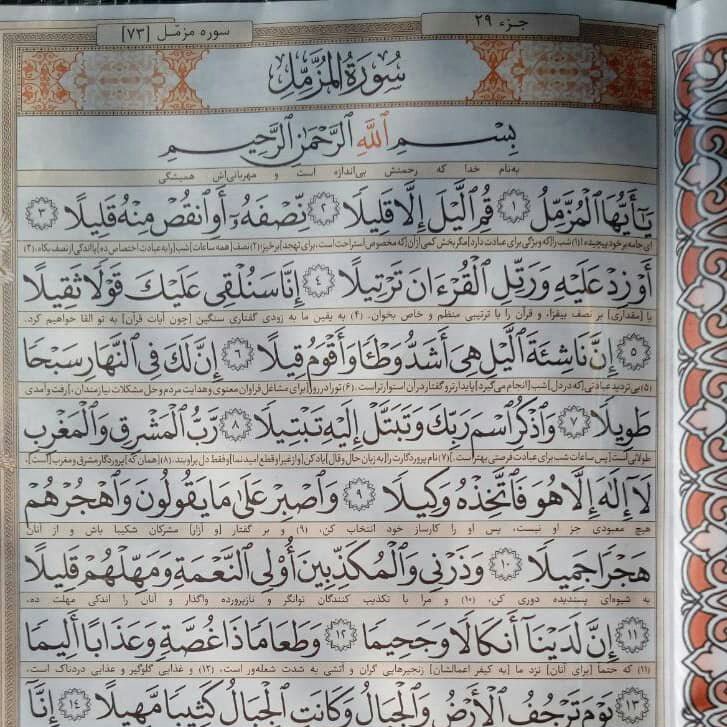 جزء ۲۹
سوره مزمّل [۷۳]
سُورَةُ المُزَّمِّل
بِسْمِ ٱللَّهِ ٱلرَّحْمَٰنِ ٱلرَّحِيمِ
به‌نام خدا که رحمتش بی‌اندازه است و مهربانی‌اش همیشگی
يَٰٓأَيُّهَا ٱلْمُزَّمِّلُ ۱ قُمِ ٱلَّيْلَ إِلَّا قَلِيلًا ۲ نِّصْفَهُۥٓ أَوِ ٱنقُصْ مِنْهُ قَلِيلًا ۳
ای جامه بر خود پیچیده! (۱) شب را [که ویژگی برای عبادت دارد] مگر بخش کمی از آن [که مخصوص استراحت است، برای تهجد] برخیز؛ (۲) نصف [همه ساعات] شب [را به عبادت اختصاص ده] یا اندکی از نصف بکاه، (۳)
أَوْ زِدْ عَلَيْهِ وَرَتِّلِ ٱلْقُرْءَانَ تَرْتِيلًا ۴ إِنَّا سَنُلْقِى عَلَيْكَ قَوْلًا ثَقِيلًا
یا [مقداری] بر نصف بیفزا، و قرآن را با ترتیبی منظم و خاص بخوان. (۴) به یقین ما به زودی گفتاری سنگین [چون آیات قرآن] به تو القا خواهیم کرد.
۵ إِنَّ نَاشِئَةَ ٱلَّيْلِ هِىَ أَشَدُّ وَطْـًٔا وَأَقْوَمُ قِيلًا ۶ إِنَّ لَكَ فِى ٱلنَّهَارِ سَبْحًا
(۵) بی‌تردید عبادتی [که در دل] شب [انجام می‌گیرد] پایدارتر و گفتار در آن استوارتر است. (۶) تو را در روز [برای مشاغل فراوان معنوی و هدایت مردم و حل مشکلات نیازمندان،] رفت و آمدی
طَوِيلًا ۷ وَٱذْكُرِ ٱسْمَ رَبِّكَ وَتَبَتَّلْ إِلَيْهِ تَبْتِيلًا ۸ رَّبُّ ٱلْمَشْرِقِ وَٱلْمَغْرِبِ
طولانی است [پس ساعات شب برای عبادت فرصتی بهتر است.] (۷) نام پروردگارت را [به زبان حال و قال] یاد کن [و از غیر او قطع امید نما] و فقط دل بر او بند، (۸) [همان که] پروردگار مشرق و مغرب [است]،
لَآ إِلَٰهَ إِلَّا هُوَ فَٱتَّخِذْهُ وَكِيلًا ۹ وَٱصْبِرْ عَلَىٰ مَا يَقُولُونَ وَٱهْجُرْهُمْ
هیچ معبودی جز او نیست، پس او را کارساز خود انتخاب کن، (۹) و بر گفتار [و آزار] مشرکان شکیبا باش و از آنان
هَجْرًا جَمِيلًا ۱۰ وَذَرْنِى وَٱلْمُكَذِّبِينَ أُو۟لِى ٱلنَّعْمَةِ وَمَهِّلْهُمْ قَلِيلًا
به شیوه‌ای پسندیده دوری کن، (۱۰) و مرا با تکذیب کنندگان توانگر و نازپرورده واگذار و آنان را اندکی مهلت ده،
۱۱ إِنَّ لَدَيْنَآ أَنكَالًا وَجَحِيمًا ۱۲ وَطَعَامًا ذَا غُصَّةٍ وَعَذَابًا أَلِيمًا
(۱۱) که حتماً [برای آنان] نزد ما [به کیفر اعمالشان] زنجیرهایی گران و آتشی به شدت شعله‌ور است، (۱۲) و غذایی گلوگیر و عذابی دردناک است،
۱۳ يَوْمَ تَرْجُفُ ٱلْأَرْضُ وَٱلْجِبَالُ وَكَانَتِ ٱلْجِبَالُ كَثِيبًا مَّهِيلًا ۱۴ إِنَّآ